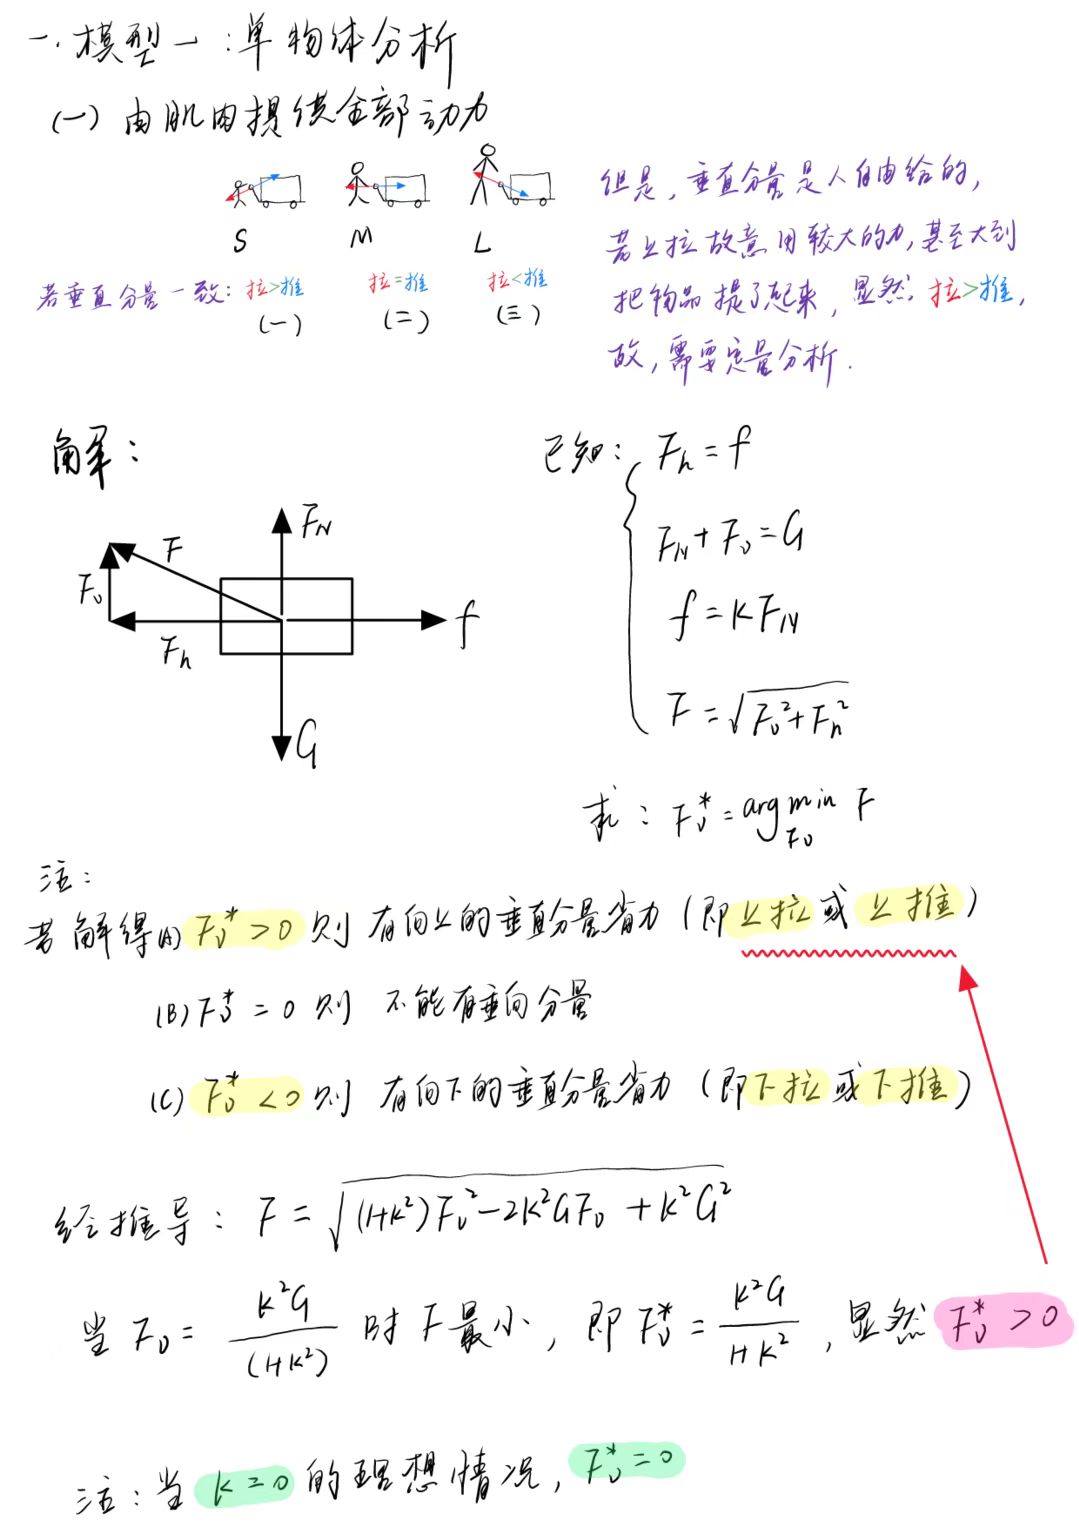 一. 模型一：单物体分析
(一) 由肌肉提供全部动力
S M L
若垂直分量一致：拉>推 拉=推 拉<推
(一) (二) (三)
但是，垂直分量是人自由给的，
若上拉故意用较大的力，甚至大到
把物品提了起来，显然，拉>推，
故，需要定量分析.
解：
F_N
F
F_v
F_h
f
G
已知：F_h = f
F_N + F_v = G
f = kF_N
F = √(F_v² + F_h²)
求：F_v* = argmin F
F_v
注：
若解得(A) F_v* > 0 则 有向上的垂直分量省力（即上拉或上推）
(B) F_v* = 0 则 不能有垂向分量
(C) F_v* < 0 则 有向下的垂直分量省力（即下拉或下推）
经推导：F = √((1+k²)F_v² - 2k²GF_v + k²G²)
当 F_v = k²G/(1+k²) 时 F 最小，即 F_v* = k²G/(1+k²)，显然 F_v* > 0
注：当 k=0 的理想情况，F_v* = 0